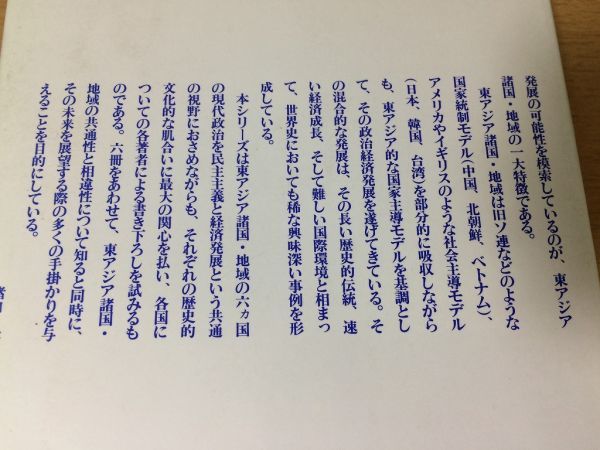 発展の可能性を模索しているのが、東アジア
諸国・地域の一大特徴である。
東アジア諸国・地域は旧ソ連などのような
国家統制モデル(中国、北朝鮮、ベトナム)、
アメリカやイギリスのような社会主導モデル
(日本、韓国、台湾)を部分的に吸収しながら
も、東アジア的な国家主導モデルを基調とし
て、その政治経済発展を遂げてきている。そ
の混合的な発展は、その長い歴史的伝統、速
い経済成長、そして難しい国際環境と相まっ
て、世界史においても稀な興味深い事例を形
成している。
本シリーズは東アジア諸国・地域の六ヵ国
の現代政治を民主主義と経済発展という共通
の視野におさめながらも、それぞれの歴史的
文化的な肌合いに最大の関心を払い、各国に
ついての各著者による書き下ろしを試みるも
のである。六冊をあわせて、東アジア諸国・
地域の共通性と相違性について知ると同時に、
その未来を展望する際の多くの手掛かりを与
えることを目的にしている。